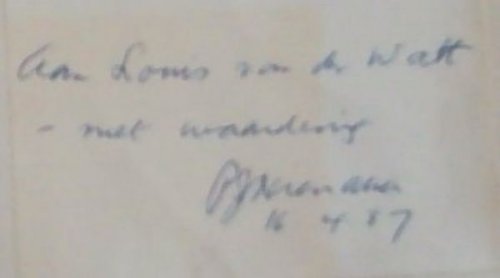 Aan Louis van der Watt
- met waardering
16 4 87